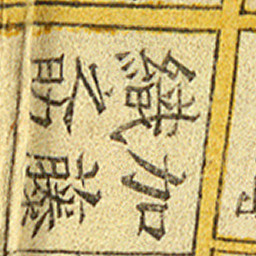 加藤
織之助